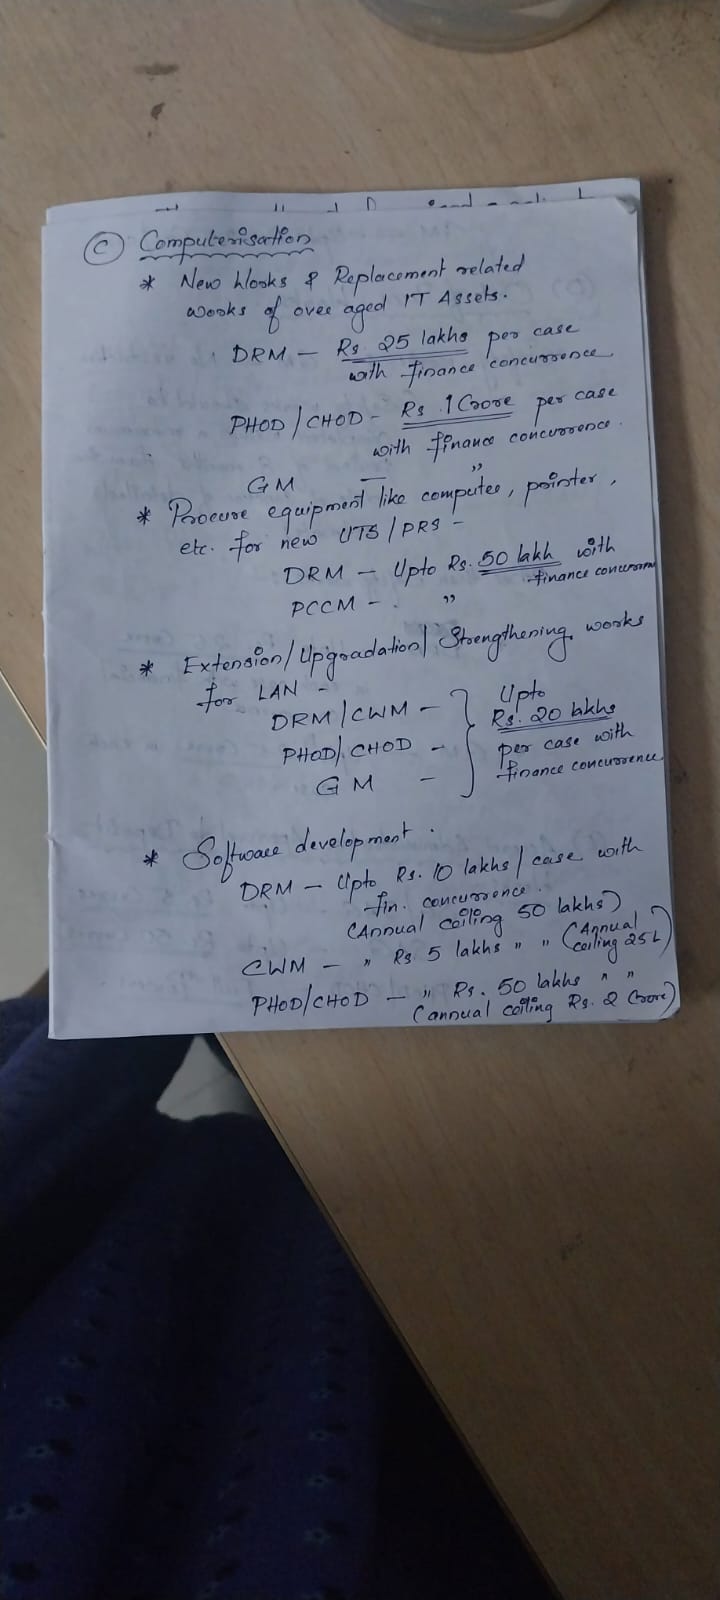 (C) Computerisation
* New Works & Replacement related
works of over aged IT Assets.
DRM – Rs. 25 lakhs per case
with finance concurrence
PHOD/CHOD – Rs. 1 Crore per case
with finance concurrence.
GM – "
* Procure equipment like computer, printer,
etc. for new UTS/PRS –
DRM – Upto Rs. 50 lakh with
finance concurrence
PCCM – "
* Extension/Upgradation/Strengthening works
for LAN –
DRM/CWM – } Upto
Rs. 20 lakhs
PHOD/CHOD – per case with
GM – finance concurrence
* Software development.
DRM – Upto Rs. 10 lakhs/case with
fin. concurrence.
(Annual ceiling 50 lakhs)
CWM – " Rs 5 lakhs " " (Annual
ceiling 25L)
PHOD/CHOD – " Rs. 50 lakhs " "
(annual ceiling Rs. 2 Crore)